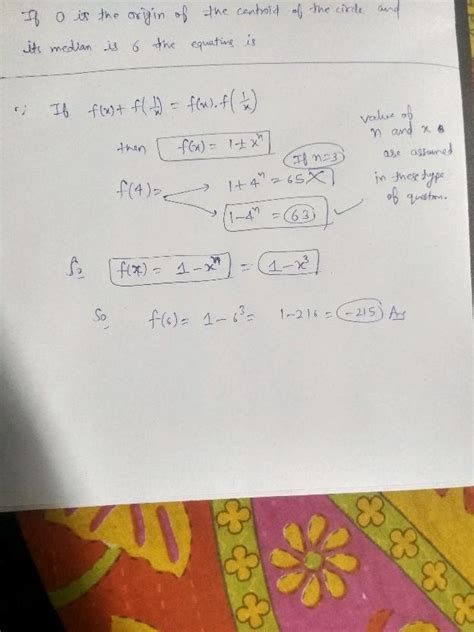 If O is the origin of the centroid of the circle and
its median is 6 the equation is
If f(x) + f(1/x) = f(x).f(1/x)
then f(x) = 1±xⁿ
If n=3
f(4) = → 1+4ⁿ = 65 X
→ 1-4ⁿ = 63
value of
n and x
are assumed
in these type
of question.
So f(x) = 1-xⁿ = 1-x³
So f(6) = 1-6³ = 1-216 = -215 Ans